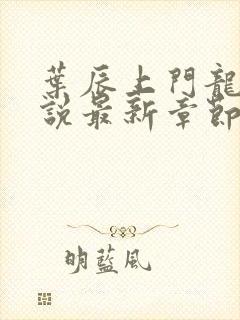 葉辰上門龍
說最新章節
明藍風